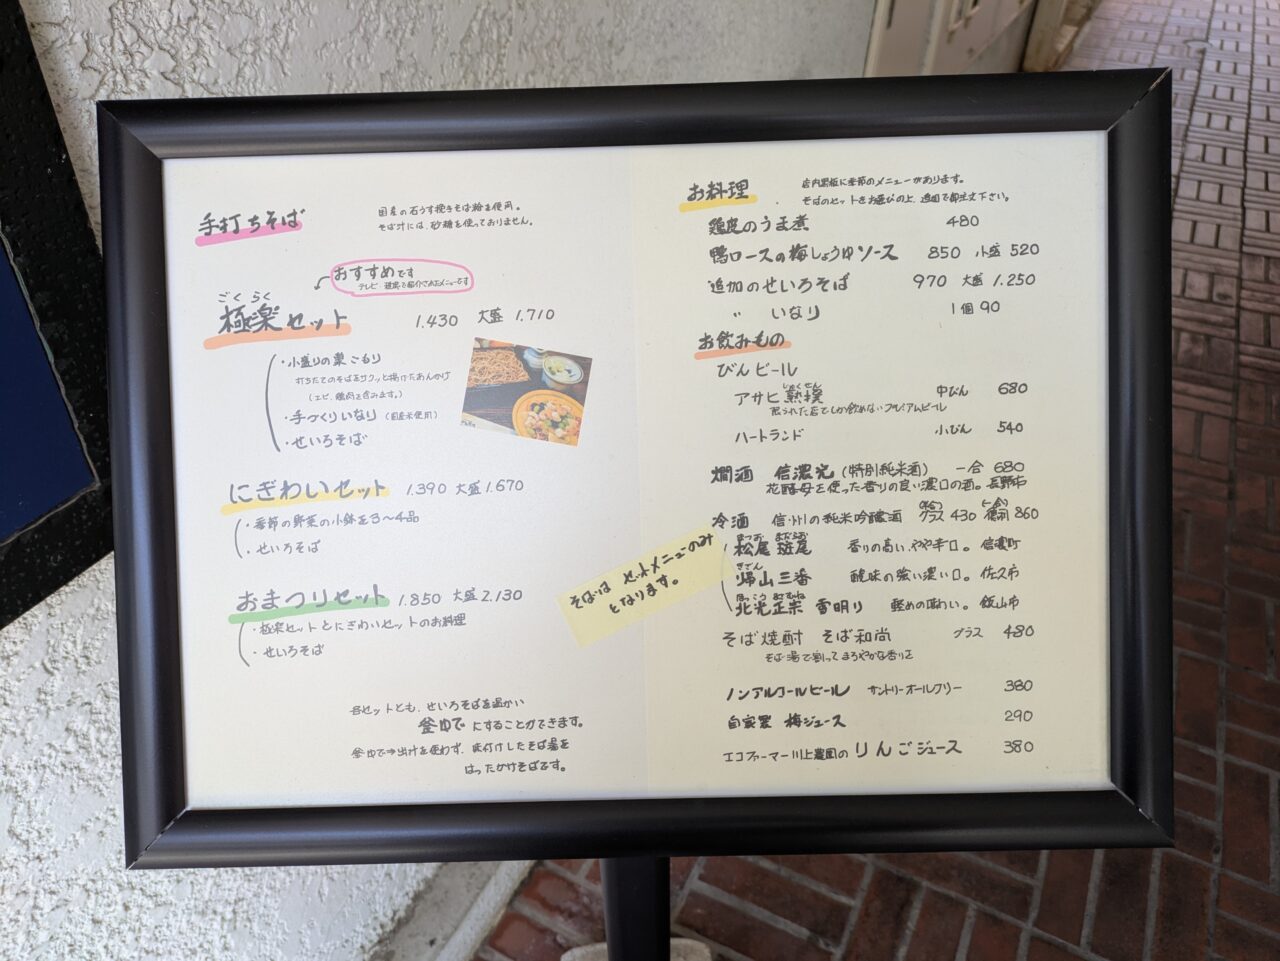 手打ちそば
国産の石うす挽きそば粉を使用。
そば汁には、砂糖を使っておりません。
おすすめです
テレビ・雑誌で紹介されたメニューです
ごくらく
極楽セット 1.430 大盛 1.710
・小盛りの巣ごもり
打ちたてのそばをサクッと揚げたあんかけ
(エビ、鶏肉を含みます。)
・手づくりいなり (国産米使用)
・せいろそば
にぎわいセット 1.390 大盛 1.670
・季節の野菜の小鉢を3〜4品
・せいろそば
おまつりセット 1.850 大盛 2.130
・極楽セットとにぎわいセットのお料理
・せいろそば
各セットとも、せいろそばを温かい
釜ゆでにすることができます。
釜ゆで→出汁を使わず、味付けしたそば湯を
はったかけそばです。
そばはセットメニューのみ
となります。
お料理
店内黒板に季節のメニューがあります。
そばのセットをお選びの上、追加で御注文下さい。
鶏皮のうま煮 480
鴨ロースの梅しょうゆソース 850 小盛 520
追加のせいろそば 970 大盛 1.250
〃 いなり 1個 90
お飲みもの
びんビール
じゅくせん
アサヒ熟撰 中びん 680
限られた店でしか飲めないプレミアムビール
ハートランド 小びん 540
燗酒 信濃光 (特別純米酒) 一合 680
花酵母を使った香りの良い濃口の酒。長野市
冷酒 信州の純米吟醸酒 グラス 430 徳利 860
まつお まだらお
松尾 斑尾 香りの高い、やや辛口。信濃町
きざん
帰山三番 酸味の強い濃い口。佐久市
ほっこう
北光正宗 雪明り 軽めの味わい。飯山市
そば焼酎 そば和尚 グラス 480
そば湯で割ってまろやかな香りを
ノンアルコールビール サントリーオールフリー 380
自家製 梅ジュース 290
エコファーマー川上農園の りんごジュース 380